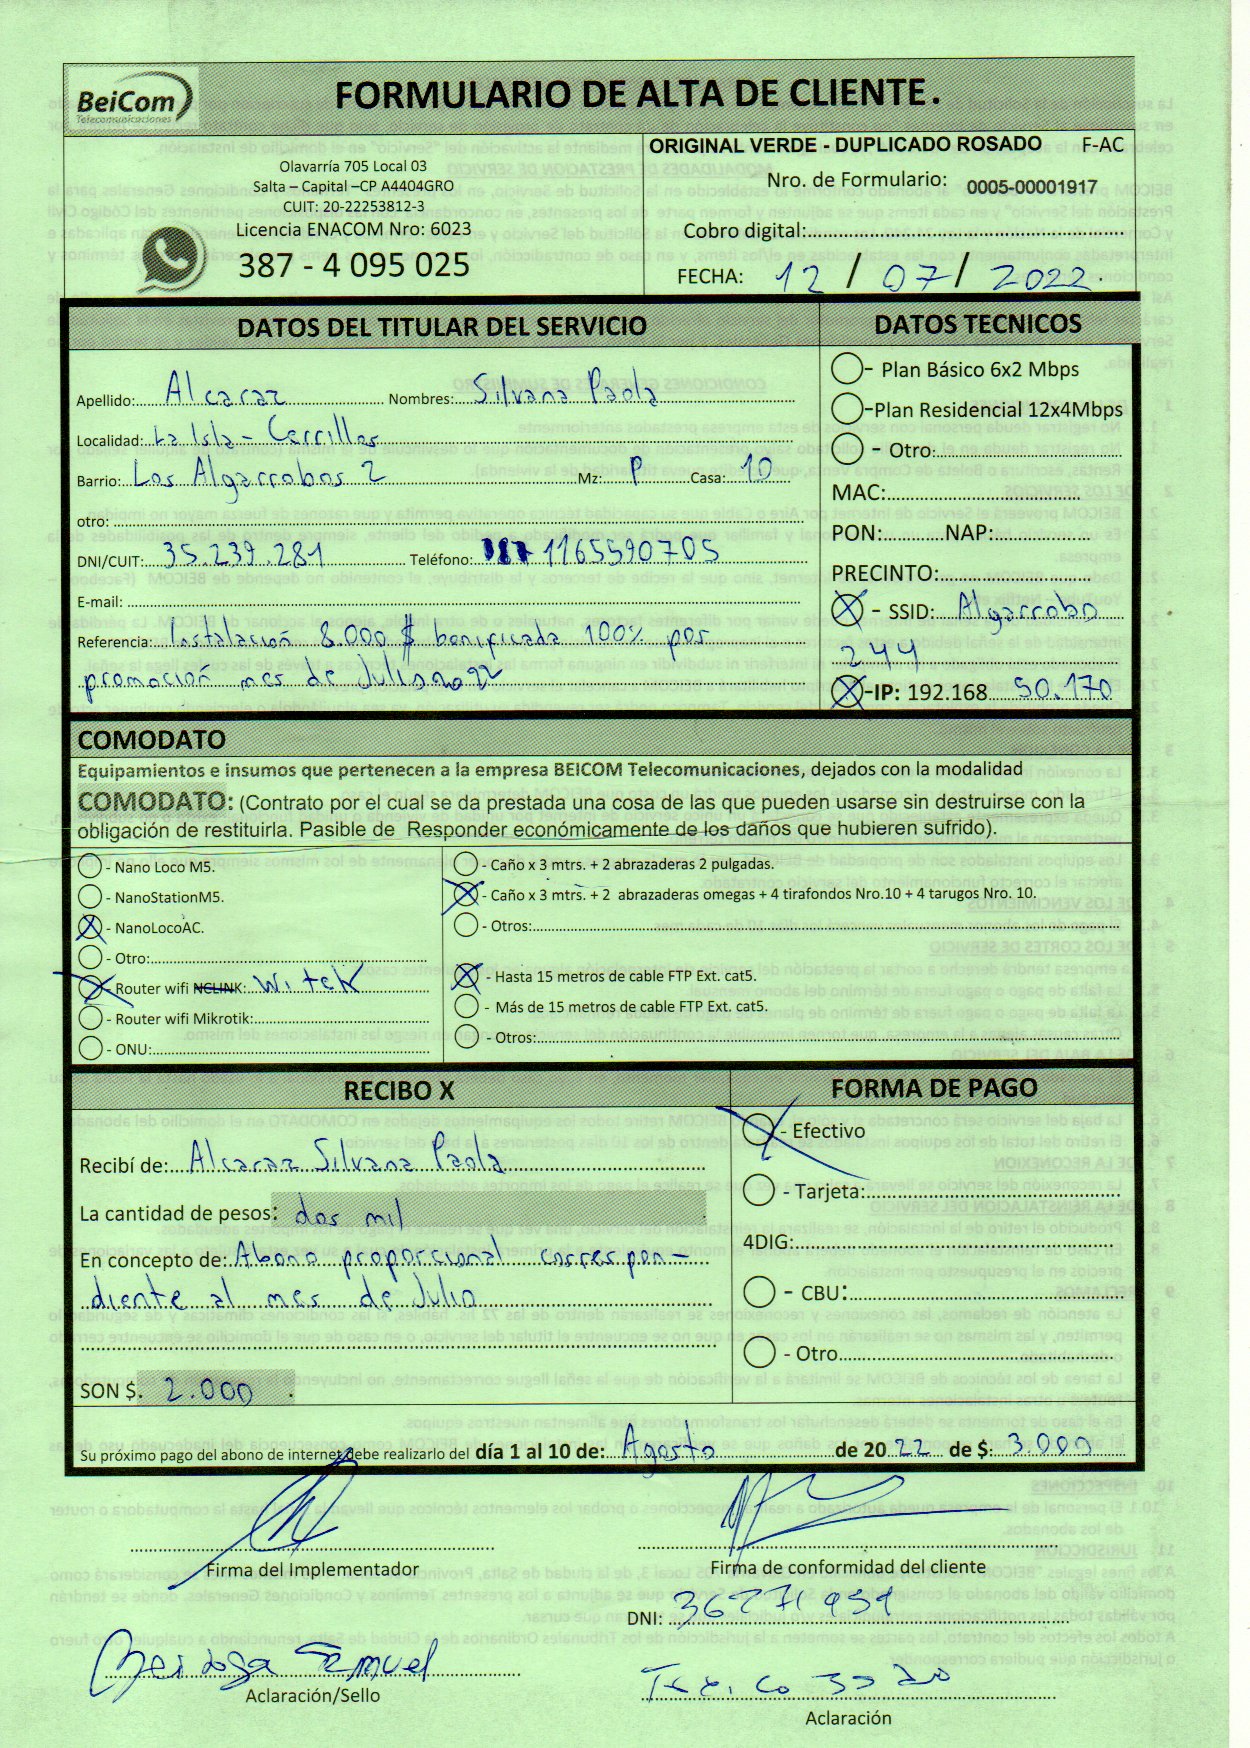 BeiCom
Telecomunicaciones
FORMULARIO DE ALTA DE CLIENTE.
Olavarría 705 Local 03
Salta – Capital –CP A4404GRO
CUIT: 20-22253812-3
Licencia ENACOM Nro: 6023
387 - 4 095 025
ORIGINAL VERDE - DUPLICADO ROSADO F-AC
Nro. de Formulario: 0005-00001917
Cobro digital:
FECHA: 12 / 07 / 2022.
DATOS DEL TITULAR DEL SERVICIO
Apellido: Alcaraz Nombres: Silvana Paola
Localidad: La Isla - Cerrillos
Barrio: Los Algarrobos 2 Mz: P Casa: 10
otro:
DNI/CUIT: 35.239.281 Teléfono: 1165590705
E-mail:
Referencia: Instalación 8.000 $ bonificada 100% por
promoción mes de Julio 2022
DATOS TECNICOS
- Plan Básico 6x2 Mbps
-Plan Residencial 12x4Mbps
- Otro:
MAC:
PON: NAP:
PRECINTO:
- SSID: Algarrobo
244
-IP: 192.168. 50.170
COMODATO
Equipamientos e insumos que pertenecen a la empresa BEICOM Telecomunicaciones, dejados con la modalidad
COMODATO: (Contrato por el cual se da prestada una cosa de las que pueden usarse sin destruirse con la
obligación de restituirla. Pasible de Responder económicamente de los daños que hubieren sufrido).
- Nano Loco M5.
- NanoStationM5.
- NanoLocoAC.
- Otro:
- Router wifi NCLINK: Witek
- Router wifi Mikrotik:
- ONU:
- Caño x 3 mtrs. + 2 abrazaderas 2 pulgadas.
- Caño x 3 mtrs. + 2 abrazaderas omegas + 4 tirafondos Nro.10 + 4 tarugos Nro. 10.
- Otros:
- Hasta 15 metros de cable FTP Ext. cat5.
- Más de 15 metros de cable FTP Ext. cat5.
- Otros:
RECIBO X
Recibí de: Alcaraz Silvana Paola
La cantidad de pesos: dos mil
En concepto de: Abono proporcional correspon-
diente al mes de Julio
SON $. 2.000
FORMA DE PAGO
- Efectivo
- Tarjeta:
4DIG:
- CBU:
- Otro
Su próximo pago del abono de internet debe realizarlo del día 1 al 10 de: Agosto de 20 22 de $: 3.000
Firma del Implementador
Firma de conformidad del cliente
DNI: 36271959
Samuel
Aclaración/Sello
Aclaración